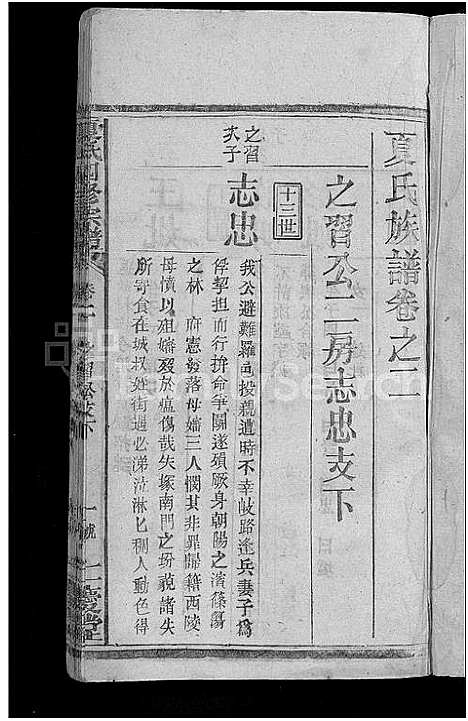 夏氏族譜卷之二
之習公二房志忠支下
十三世
之習
次子
志忠
我公避難羅邑投親遭時不幸岐路逢兵妻子為
俘挈担而行拚命爭鬪遂殞厥身朝陽之濱篠簜
之林 府憲發落母嬸三人憫其非罪歸籍西陵
母憤以殂嬸歿於瘟傷哉失塚南門之坋藐諸失
所寄食在城叔姪街遇必涕泣淋匕稠人動色得
夏氏四修宗譜
卷二
之習公支下
一號